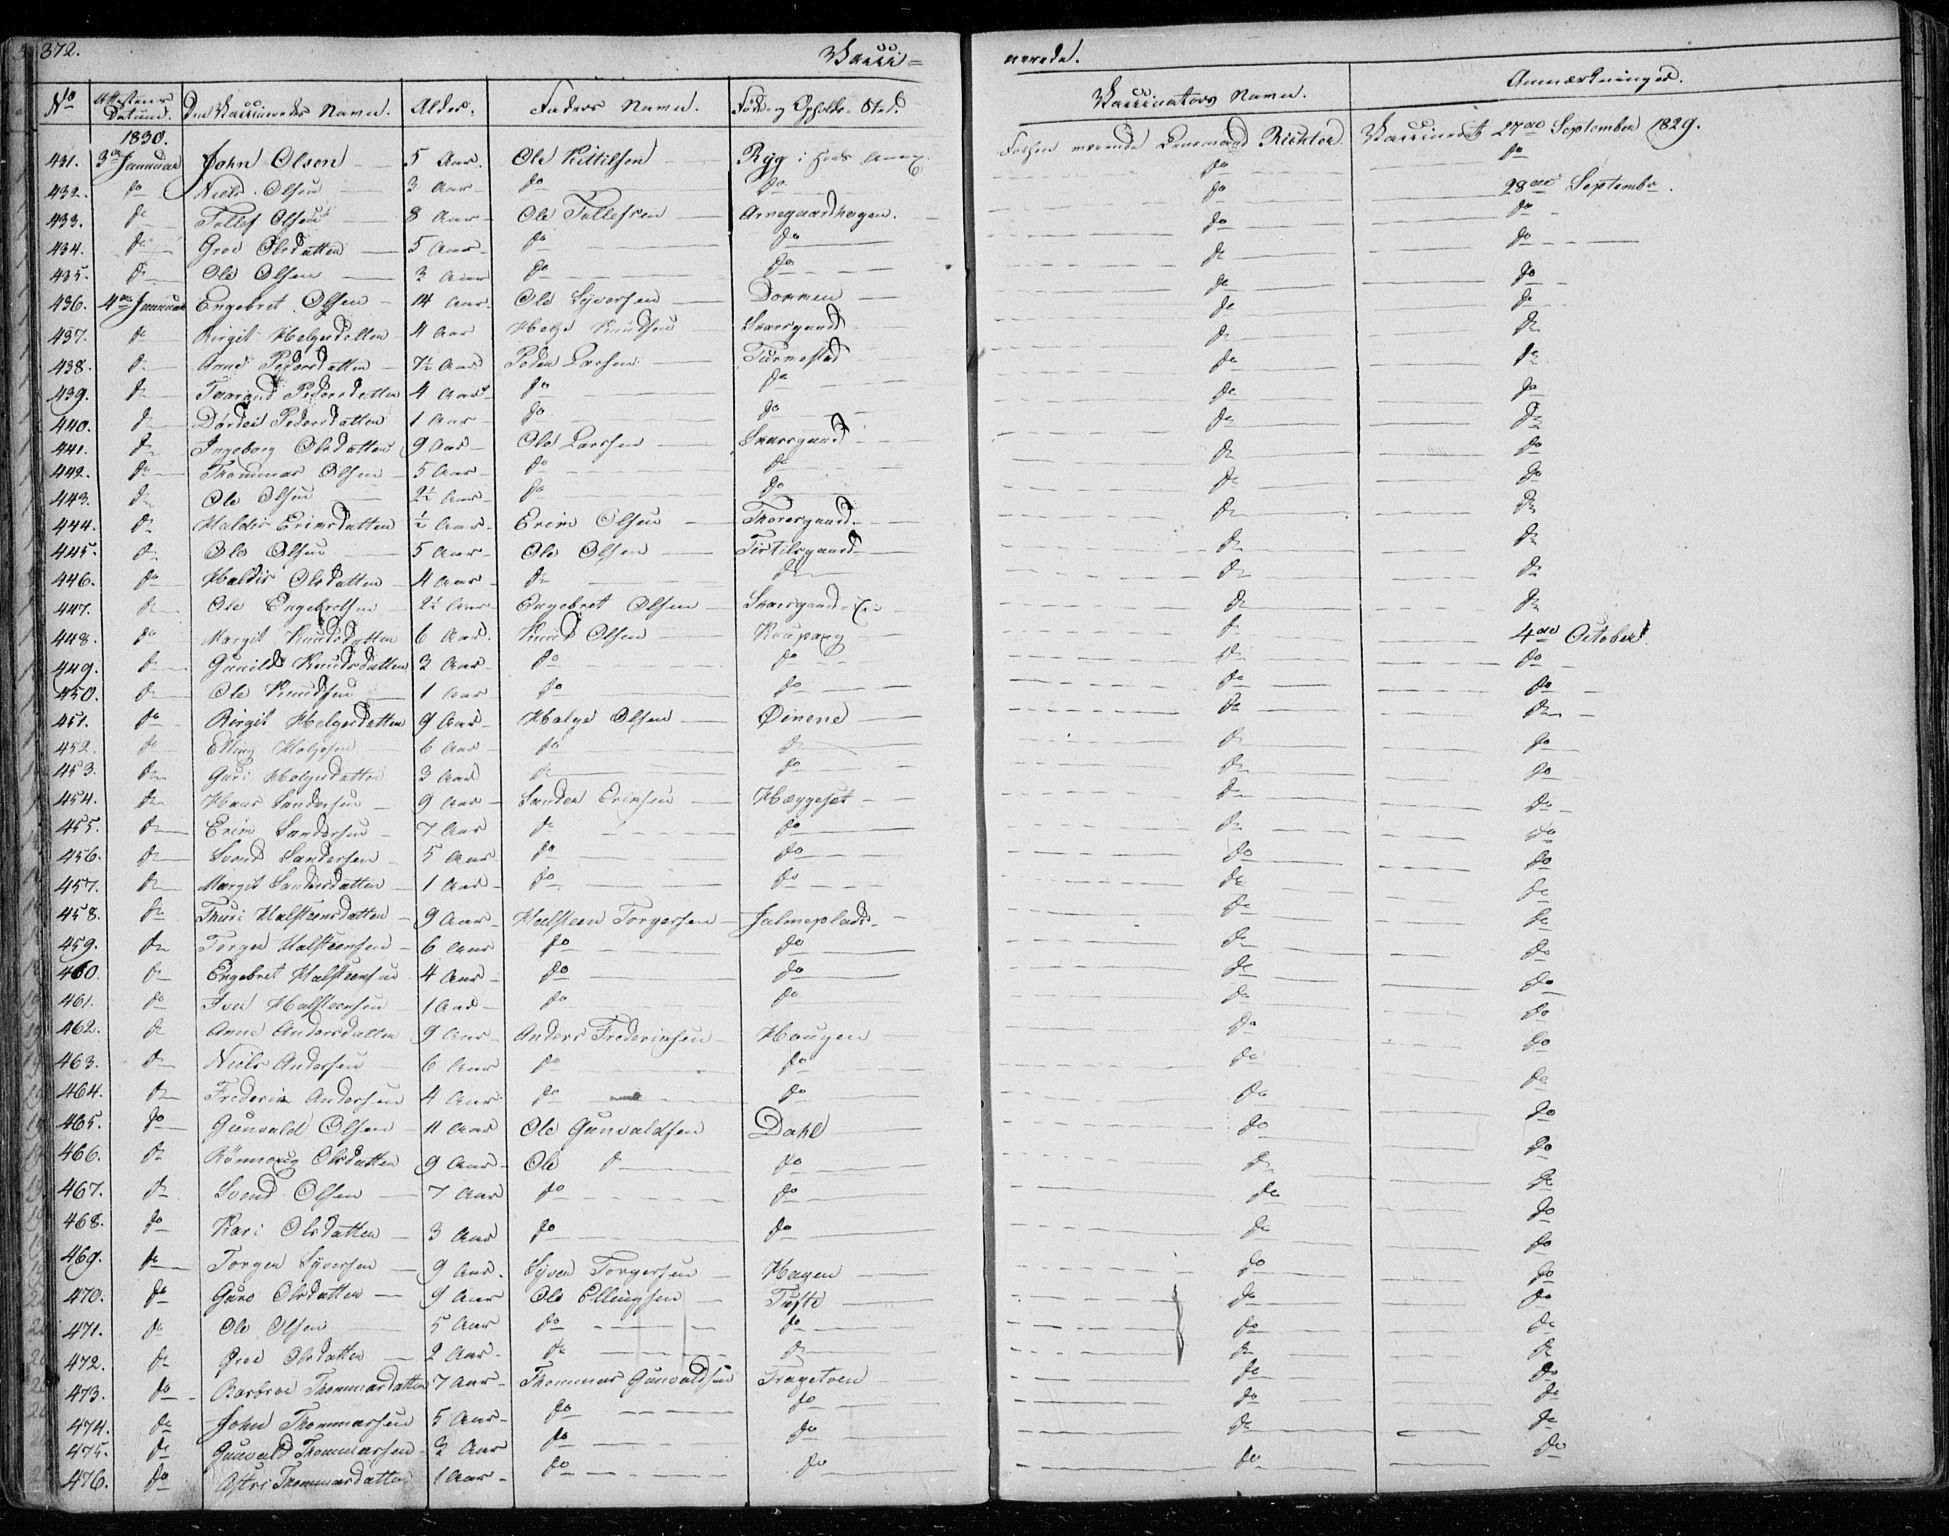 372. Vacci=
nerede.
No Attestens Datum. Den Vaccineredes Navn. Alder. Faders Navn. Føde og Opholds-Sted.
Vaccinators Navn. Anmærkninger.
1830.
431. 3de Januar John Olsen 5 Aar. Ole Kittilsen Ryg i Hols Annex. Lensmand Richter. Vaccineret 27de September 1829.
432. do Niels Olsen 3 Aar do do do do
433. do Tollef Olsen 8 Aar Ole Tollefsen Arnegaardhagen. do 28de September.
434. do Groe Olsdatter 5 Aar do do do do
435. do Ole Olsen 3 Aar do do do do
436. 4de Januar Engebret Olsen 14 Aar. Ole Syversen Dommen do do
437. do Birgit Helgesdatter 4 Aar Helge Knudsen Skarsgaard do do
438. do Anne Pedersdatter 7½ Aar Peder Larsen Turnestad do do
439. do Taarand Pedersdatter 4 Aar do do do do
440. do Dordei Pedersdatter 1 Aar do do do do
441. do Ingeborg Olsdatter 9 Aar Ole Larssen Skarsgaard do do
442. do Thommas Olsen 5 Aar do do do do
443. do Ole Olsen 2½ Aar do do do do
444. do Haldis Eriksdatter ½ Aar Erik Olsen Thoresgaard do do
445. do Ole Olsen 5 Aar Ole Olsen Tistilsgaard do do
446. do Haldis Olsdatter 4 Aar do do do do
447. do Ole Engebretsen 2½ Aar Engebret Olsen Skarsgaard do do
448. do Margit Knudsdatter 6 Aar. Knud Olsen Koupang do 4de October
449. do Gunild Knudsdatter 3 Aar do do do do
450. do Ole Knudsen 1 Aar do do do do
451. do Birgit Helgesdatter 9 Aar Helge Olsen Øinene do do
452. do Elling Helgesen 6 Aar do do do do
453. do Guri Helgesdatter 3 Aar do do do do
454. do Hans Sandersen 9 Aar Sander Eriksen Hæggeset do do
455. do Erik Sandersen 7 Aar do do do do
456. do Svend Sandersen 5 Aar do do do do
457. do Margit Sandersdatter 1 Aar do do do do
458. do Thuri Halsteensdatter 9 Aar Halsteen Torgersen Jalmeplads do do
459. do Torger Halsteensen 6 Aar do do do do
460. do Engebret Halsteensen 4 Aar do do do do
461. do Iver Halsteensen 1 Aar do do do do
462. do Anne Andersdatter 9 Aar Anders Frederiksen Haugen do do
463. do Niels Andersen 6 Aar do do do do
464. do Frederik Andersen 4 Aar do do do do
465. do Gunvald Olsen 11 Aar Ole Gunvaldsen Dahl do do
466. do Rønnoug Olsdatter 9 Aar Ole do do do do
467. do Svend Olsen 7 Aar do do do do
468. do Kari Olsdatter 3 Aar do do do do
469. do Torger Syversen 9 Aar. Syver Torgersen Hagen do do
470. do Guro Olsdatter 9 Aar Ole Ellingsen Tufte do do
471. do Ole Olsen 5 Aar do do do do
472. do Groe Olsdatter 2 Aar do do do do
473. do Barbroe Thommasdatter 7 Aar Thommas Gunvaldsen Tragetoen do do
474. do John Thommassen 5 Aar do do do do
475. do Gunvald Thommassen 3 Aar do do do do
476. do Astri Thommasdatter 1 Aar do do do do